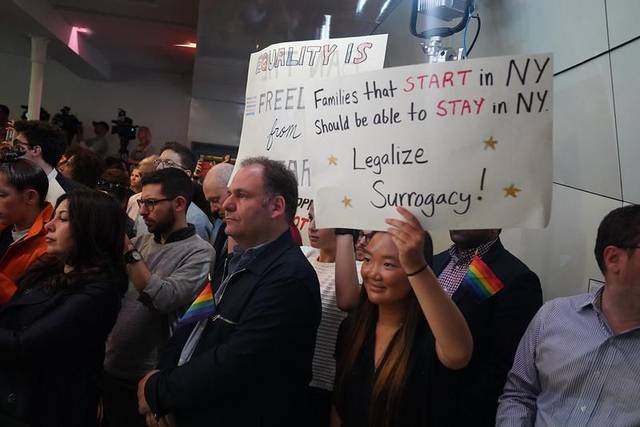 EQUALITY IS
FREE
from
Families that START in NY
Should be able to STAY in NY.
Legalize
Surrogacy!